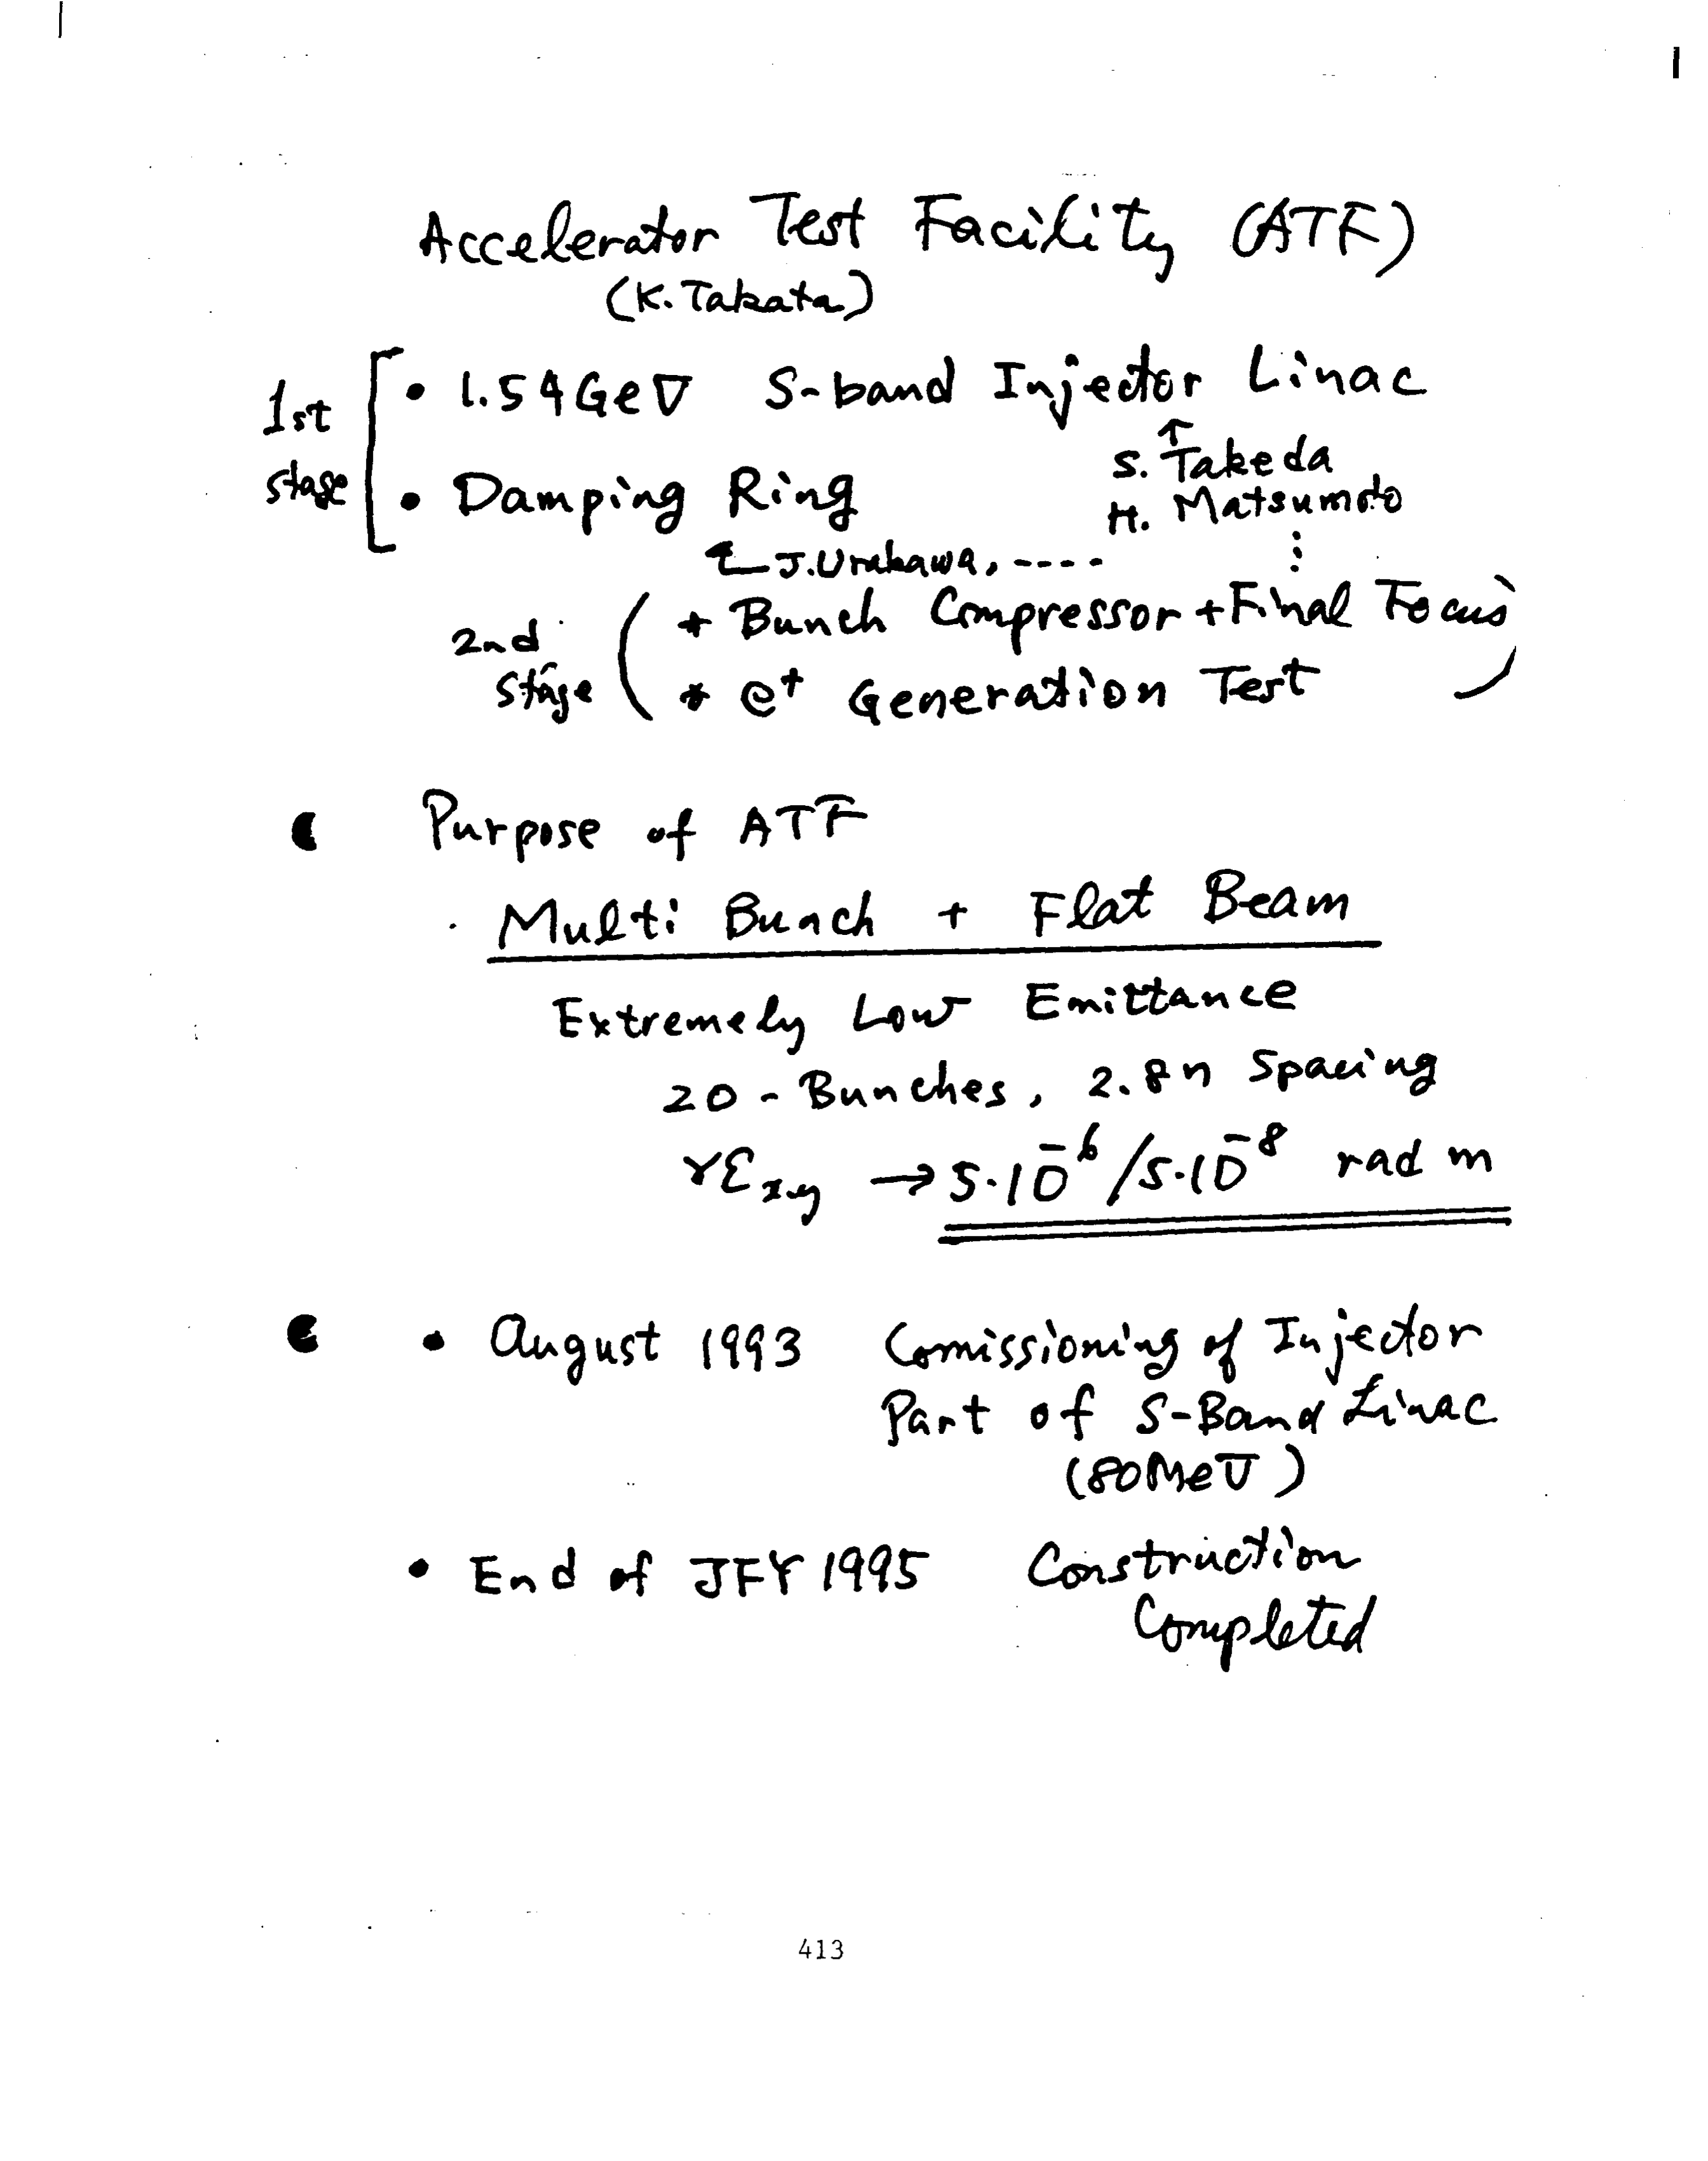 Accelerator Test Facility (ATF)
(K. Takata)
1st stage
• 1.54GeV S-band Injector Linac
↑
S. Takeda
H. Matsumoto
⋮
• Damping Ring
J. Urakawa, ----
2nd stage
* Bunch Compressor + Final Focus
* e⁺ Generation Test
Purpose of ATF
Multi Bunch + Flat Beam
Extremely Low Emittance
20 - Bunches, 2.8n Spacing
γε x,y → 5·10⁻⁶/5·10⁻⁸ rad m
• August 1993 Comissioning of Injector
Part of S-Band Linac
(80MeV)
• End of JFY 1995 Construction
Completed
413